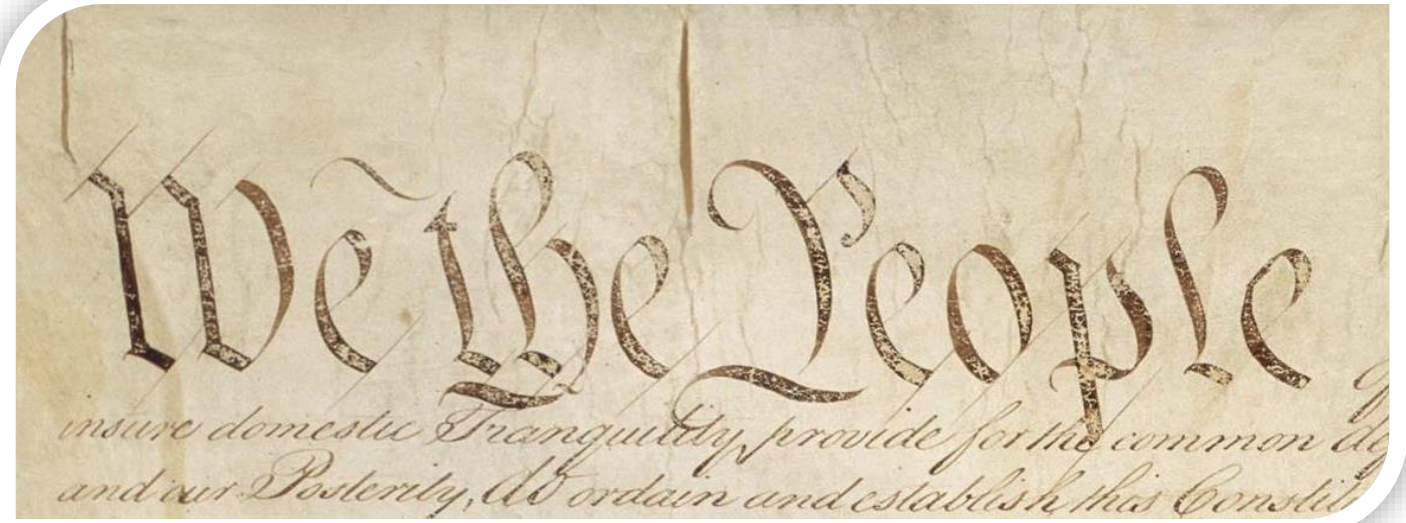 We the People
insure domestic Tranquility, provide for the common de
and our Posterity, do ordain and establish this Constit